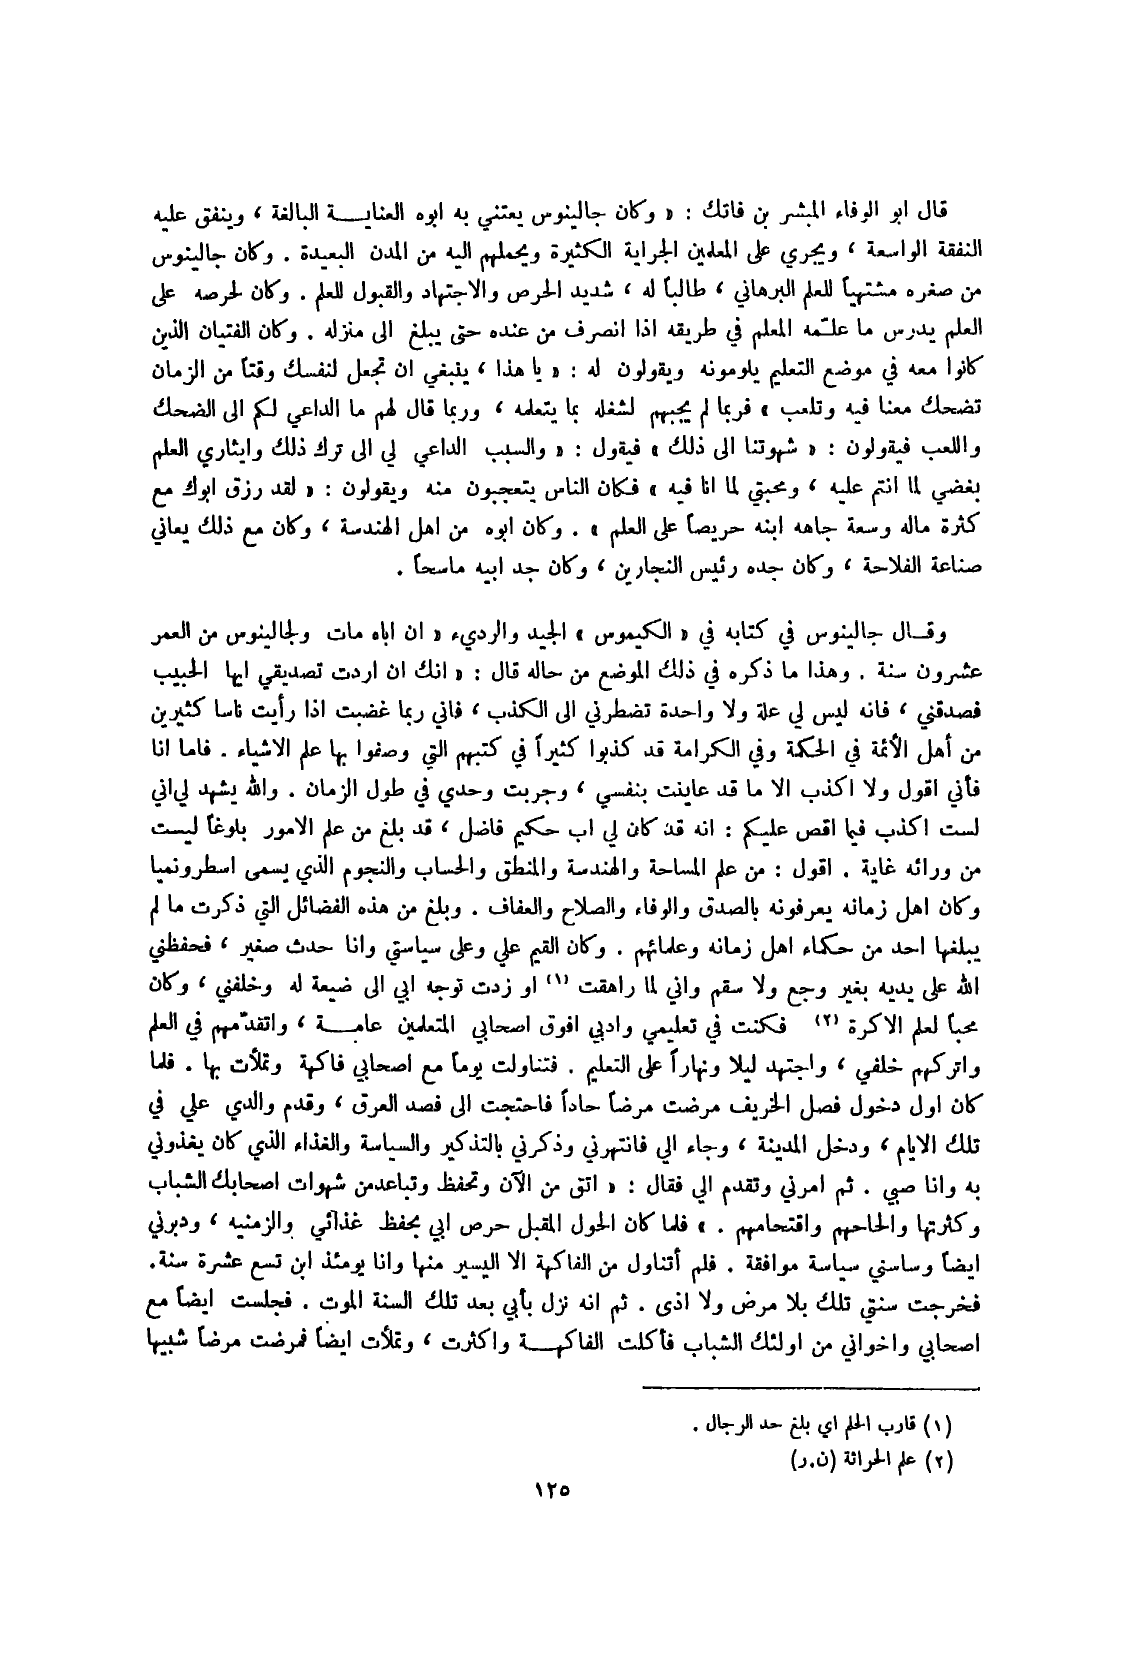 قال ابو الوفاء المبشر بن فاتك : « وكان جالينوس يعتني به ابوه العنايـــة البالغة ، وينفق عليه
النفقة الواسعة ، ويجري على المعلمين الجراية الكثيرة ويحملهم اليه من المدن البعيدة . وكان جالينوس
من صغره مشتهياً للعلم البرهاني ، طالباً له ، شديد الحرص والاجتهاد والقبول للعلم . وكان لحرصه على
العلم يدرس ما علـّمه المعلم في طريقه اذا انصرف من عنده حتى يبلغ الى منزله . وكان الفتيان الذين
كانوا معه في موضع التعليم يلومونه ويقولون له : « يا هذا ، ينبغي ان تجعل لنفسك وقتاً من الزمان
تضحك معنا فيه وتلعب » فربما لم يجبهم لشغله بما يتعلمه ، وربما قال لهم ما الداعي لكم الى الضحك
واللعب فيقولون : « شهوتنا الى ذلك » فيقول : « والسبب الداعي لي الى ترك ذلك وايثاري العلم
بغضي لما انتم عليه ، ومحبتي لما انا فيه » فكان الناس يتعجبون منه ويقولون : « لقد رزق ابوك مع
كثرة ماله وسعة جاهه ابنه حريصاً على العلم » . وكان ابوه من اهل الهندسة ، وكان مع ذلك يعاني
صناعة الفلاحة ، وكان جده رئيس النجارين ، وكان جد ابيه ماسحاً .
وقـال جالينوس في كتابه في « الكيموس » الجيد والرديء « ان اباه مات ولجالينوس من العمر
عشرون سنة . وهذا ما ذكره في ذلك الموضع من حاله قال : « انك ان اردت تصديقي ايها الحبيب
فصدقني ، فانه ليس لي علة ولا واحدة تضطرني الى الكذب ، فاني ربما غضبت اذا رأيت ناسا كثيرين
من أهل الأئمة في الحكمة وفي الكرامة قد كذبوا كثيراً في كتبهم التي وصفوا بها علم الاشياء . فاما انا
فأني اقول ولا اكذب الا ما قد عاينت بنفسي ، وجربت وحدي في طول الزمان . والله يشهد لي اني
لست اكذب فيما اقص عليكم : انه قد كان لي اب حكيم فاضل ، قد بلغ من علم الامور بلوغاً ليست
من ورائه غاية . اقول : من علم المساحة والهندسة والمنطق والحساب والنجوم الذي يسمى اسطرونميا
وكان اهل زمانه يعرفونه بالصدق والوفاء والصلاح والعفاف . وبلغ من هذه الفضائل التي ذكرت ما لم
يبلغها احد من حكماء اهل زمانه وعلمائهم . وكان القيم علي وعلى سياستي وانا حدث صغير ، فحفظني
الله على يديه بغير وجع ولا سقم واني لما راهقت (١) او زدت توجه ابي الى ضيعة له وخلفني ، وكان
محباً لعلم الاكرة (٢) فكنت في تعليمي وادبي افوق اصحابي المتعلمين عامـــة ، واتقدّمهم في العلم
واتركهم خلفي ، واجتهد ليلا ونهاراً على التعليم . فتناولت يوماً مع اصحابي فاكهة وتملأت بها . فلما
كان اول دخول فصل الخريف مرضت مرضاً حاداً فاحتجت الى فصد العرق ، وقدم والدي علي في
تلك الايام ، ودخل المدينة ، وجاء الي فانتهرني وذكرني بالتذكير والسياسة والغذاء الذي كان يغذوني
به وانا صبي . ثم امرني وتقدم الي فقال : « اتق من الآن وتحفظ وتباعدمن شهوات اصحابك الشباب
وكثرتها والحاحهم واقتحامهم . » فلما كان الحول المقبل حرص ابي بحفظ غذائي والزمنيه ، ودبرني
ايضاً وساسني سياسة موافقة . فلم أتناول من الفاكهة الا اليسير منها وانا يومئذ ابن تسع عشرة سنة.
فخرجت سنتي تلك بلا مرض ولا اذى . ثم انه نزل بأبي بعد تلك السنة الموت . فجلست ايضاً مع
اصحابي واخواني من اولئك الشباب فأكلت الفاكهـــة واكثرت ، وتملأت ايضاً فمرضت مرضاً شبيها
(١) قارب الحلم اي بلغ حد الرجال .
(٢) علم الحراثة (ن.ر)
١٢٥